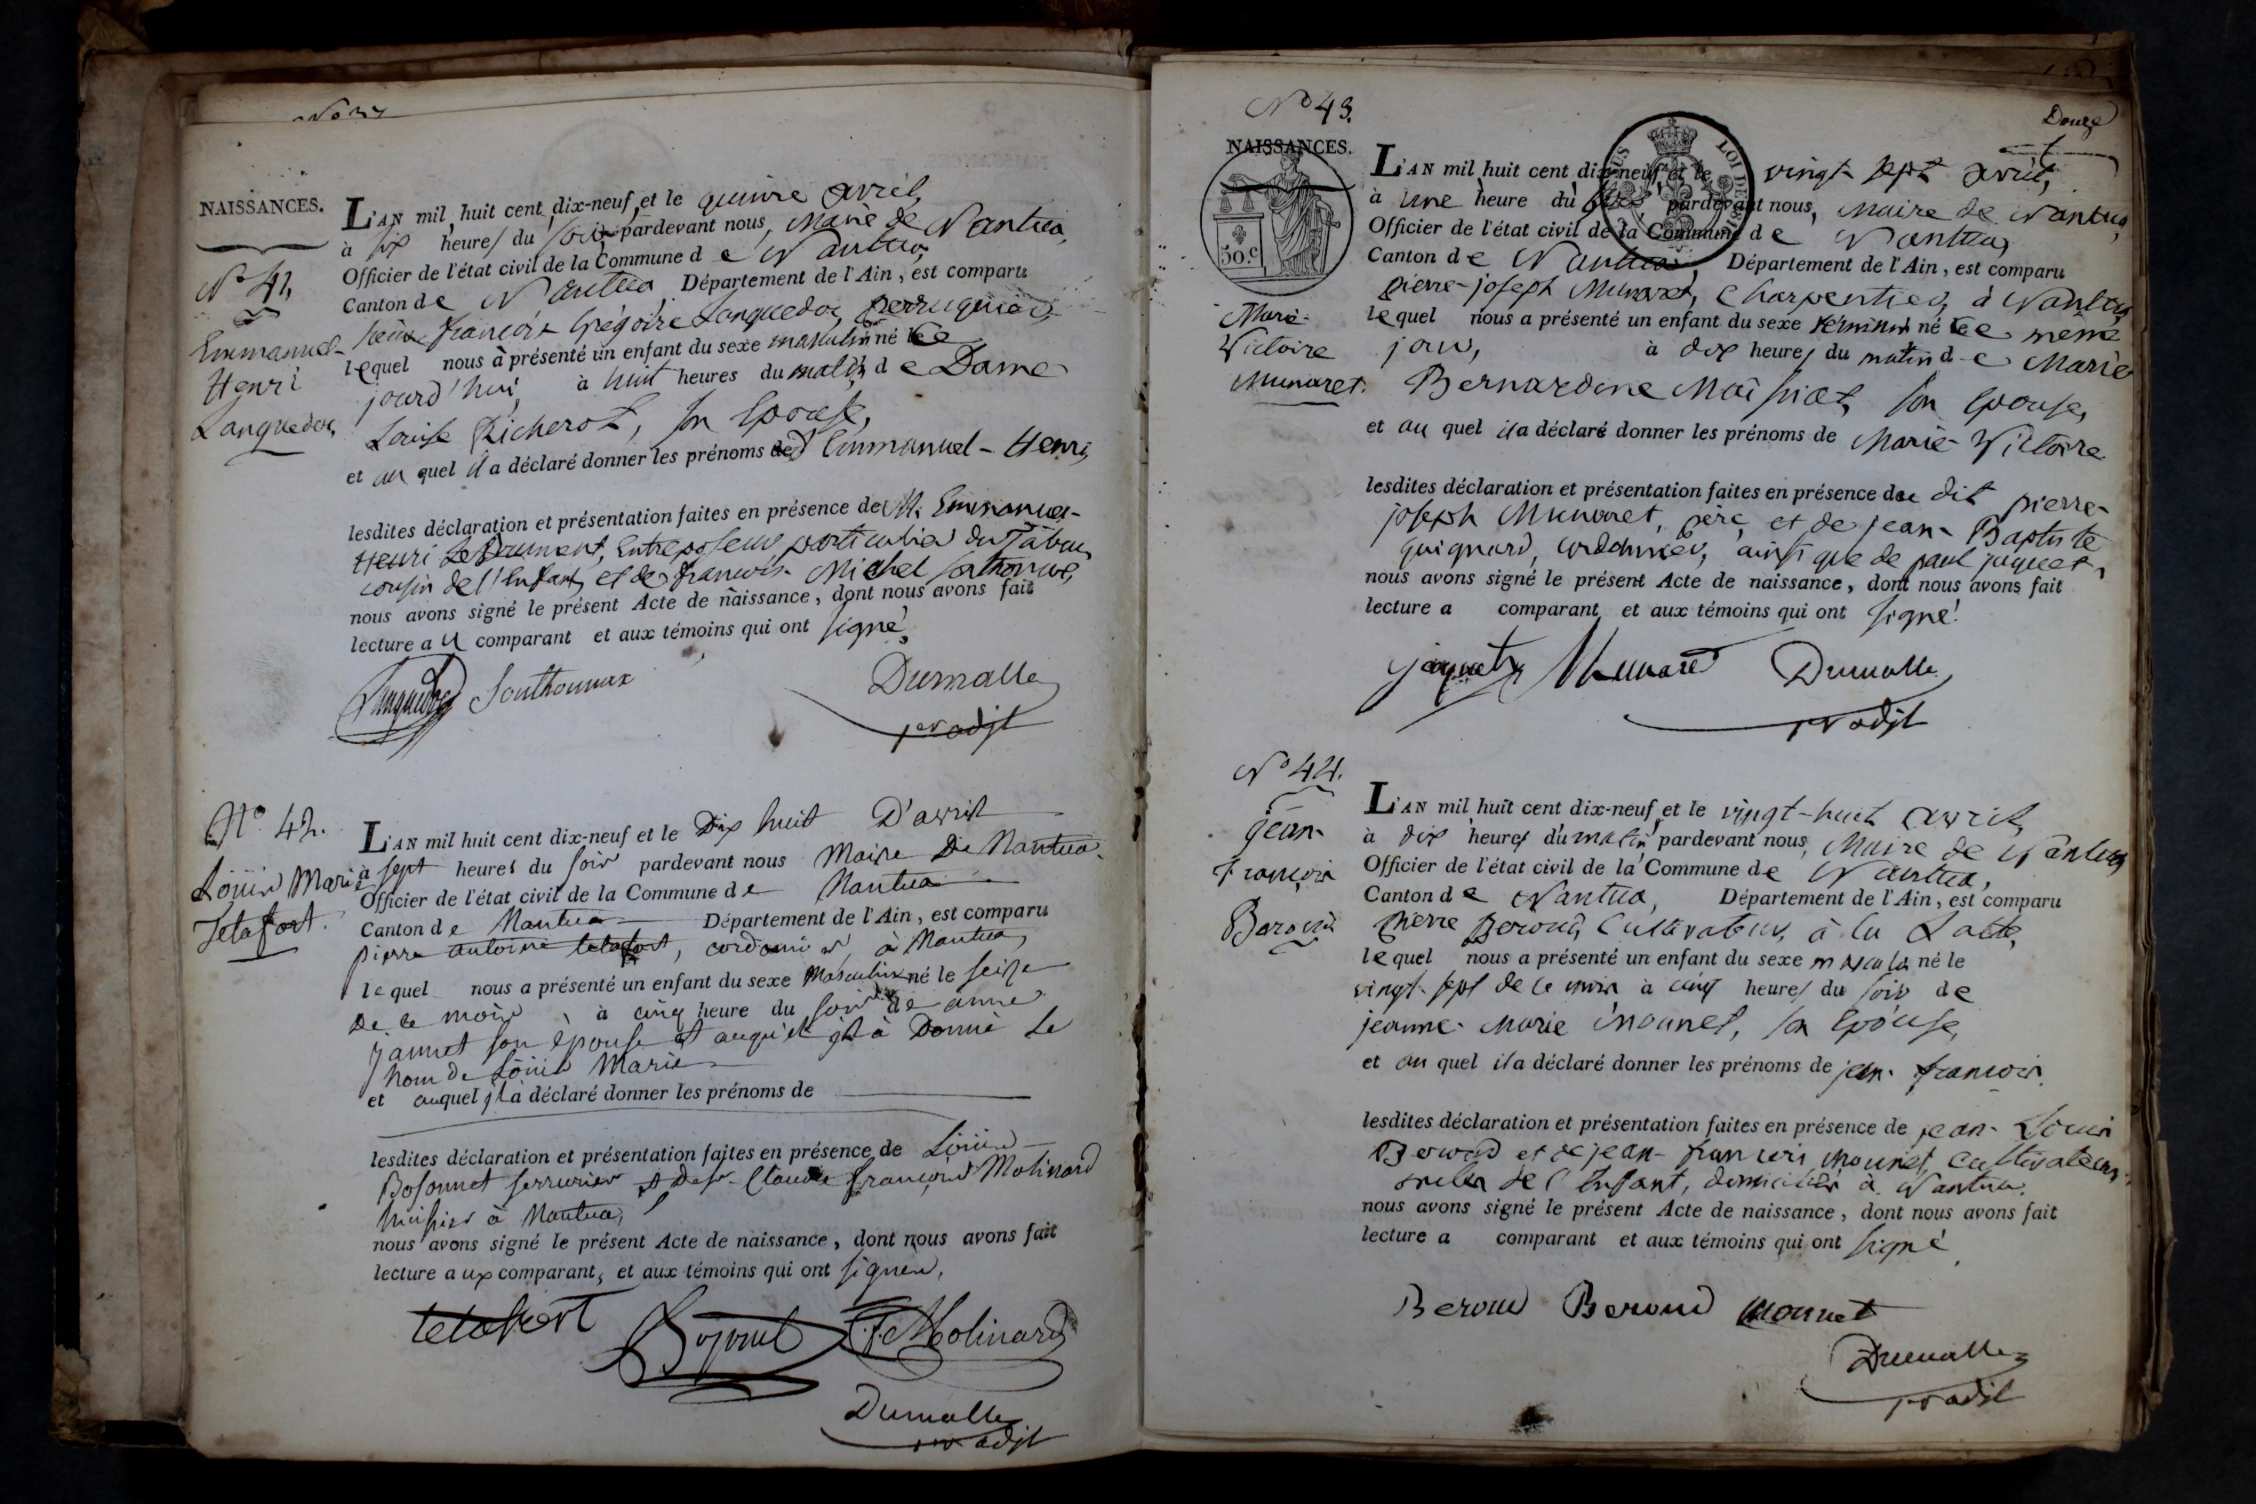 NAISSANCES.
N.º 41.
Emmanuel-
Henri
Languedoc
L'AN mil huit cent dix-neuf et le quinze avril,
à six heures du soir pardevant nous, Maire de Nantua,
Officier de l'état civil de la Commune de Nantua,
Canton de Nantua Département de l'Ain, est comparu
françois Grégoire Languedoc, perruquier,
lequel nous a présenté un enfant du sexe masculin né ce
jourd'hui, à huit heures du matin de Dame
Louise Richerot, son Epouse,
et au quel il a déclaré donner les prénoms de Emmanuel-Henri,
lesdites déclaration et présentation faites en présence de M. Emmanuel-
Henri Entreposeur particulier du Tabac,
cousin de l'Enfant, et de françois Michel Sonthonnax,
nous avons signé le présent Acte de naissance, dont nous avons fait
lecture au comparant et aux témoins qui ont signé.
Languedoc Sonthonnax Dumalle
1er adjt
Nº 42.
Löuis Marie
Tetafort.
L'AN mil huit cent dix-neuf et le Dix huit D'avril
à sept heures du soir pardevant nous Maire De Nantua.
Officier de l'état civil de la Commune de Nantua
Canton de Nantua Département de l'Ain, est comparu
pierre antoine tetafort, cordonnier à Nantua,
lequel nous a présenté un enfant du sexe Masculin né le seize
De ce mois à cinq heure du soir de anne
jannet son épouse et auquel il à Donné le
Nom de Löuis Marie
et auquel il à déclaré donner les prénoms de
lesdites déclaration et présentation faites en présence de Löuis
Bosonnet serrurier et De sr. Claude françois Molinard
huissier à Nantua,
nous avons signé le présent Acte de naissance, dont nous avons fait
lecture aux comparant, et aux témoins qui ont signés.
tetafort Bosonet C.f. Molinard
Dumalle
1er adjt
Nº 43.
Douze
NAISSANCES.
50.c
LOI DE 1816
Marie-
Victoire
Munaret.
L'AN mil huit cent dix-neuf et le vingt sept avril,
à une heure du soir, pardevant nous, Maire de Nantua,
Officier de l'état civil de la Commune de Nantua,
Canton de Nantua, Département de l'Ain, est comparu
pierre-joseph Munaret, Charpentier, à Nantua
lequel nous a présenté un enfant du sexe féminin né ce même
jour, à dix heures du matin de Marie
Bernardine Maissiat, son Epouse,
et au quel il a déclaré donner les prénoms de Marie-Victoire
lesdites déclaration et présentation faites en présence du dit pierre-
joseph Munaret, père, et de jean-Baptiste
guignard, cordonnier, ainsi que de paul jaquet,
nous avons signé le présent Acte de naissance, dont nous avons fait
lecture a comparant et aux témoins qui ont signé.
jaquet Munaret Dumalle
1er adjt
Nº 44.
jean-
françois
Beroud
L'AN mil huit cent dix-neuf et le vingt-huit avril,
à dix heures du matin pardevant nous, Maire de Nantua
Officier de l'état civil de la Commune de Nantua,
Canton de Nantua, Département de l'Ain, est comparu
pierre Beroud, Cultivateur, à
lequel nous a présenté un enfant du sexe masculin né le
vingt-sept de ce mois à cinq heures du soir de
jeanne-Marie monnet, son Epouse,
et au quel il a déclaré donner les prénoms de jean-françois.
lesdites déclaration et présentation faites en présence de jean-Louis
Beroud et de jean-françois monnet, cultivateurs,
oncles de l'Enfant, domiciliés à Nantua.
nous avons signé le présent Acte de naissance, dont nous avons fait
lecture a comparant et aux témoins qui ont signé
Beroud Beroud monnet
Dumalle
1er adjt